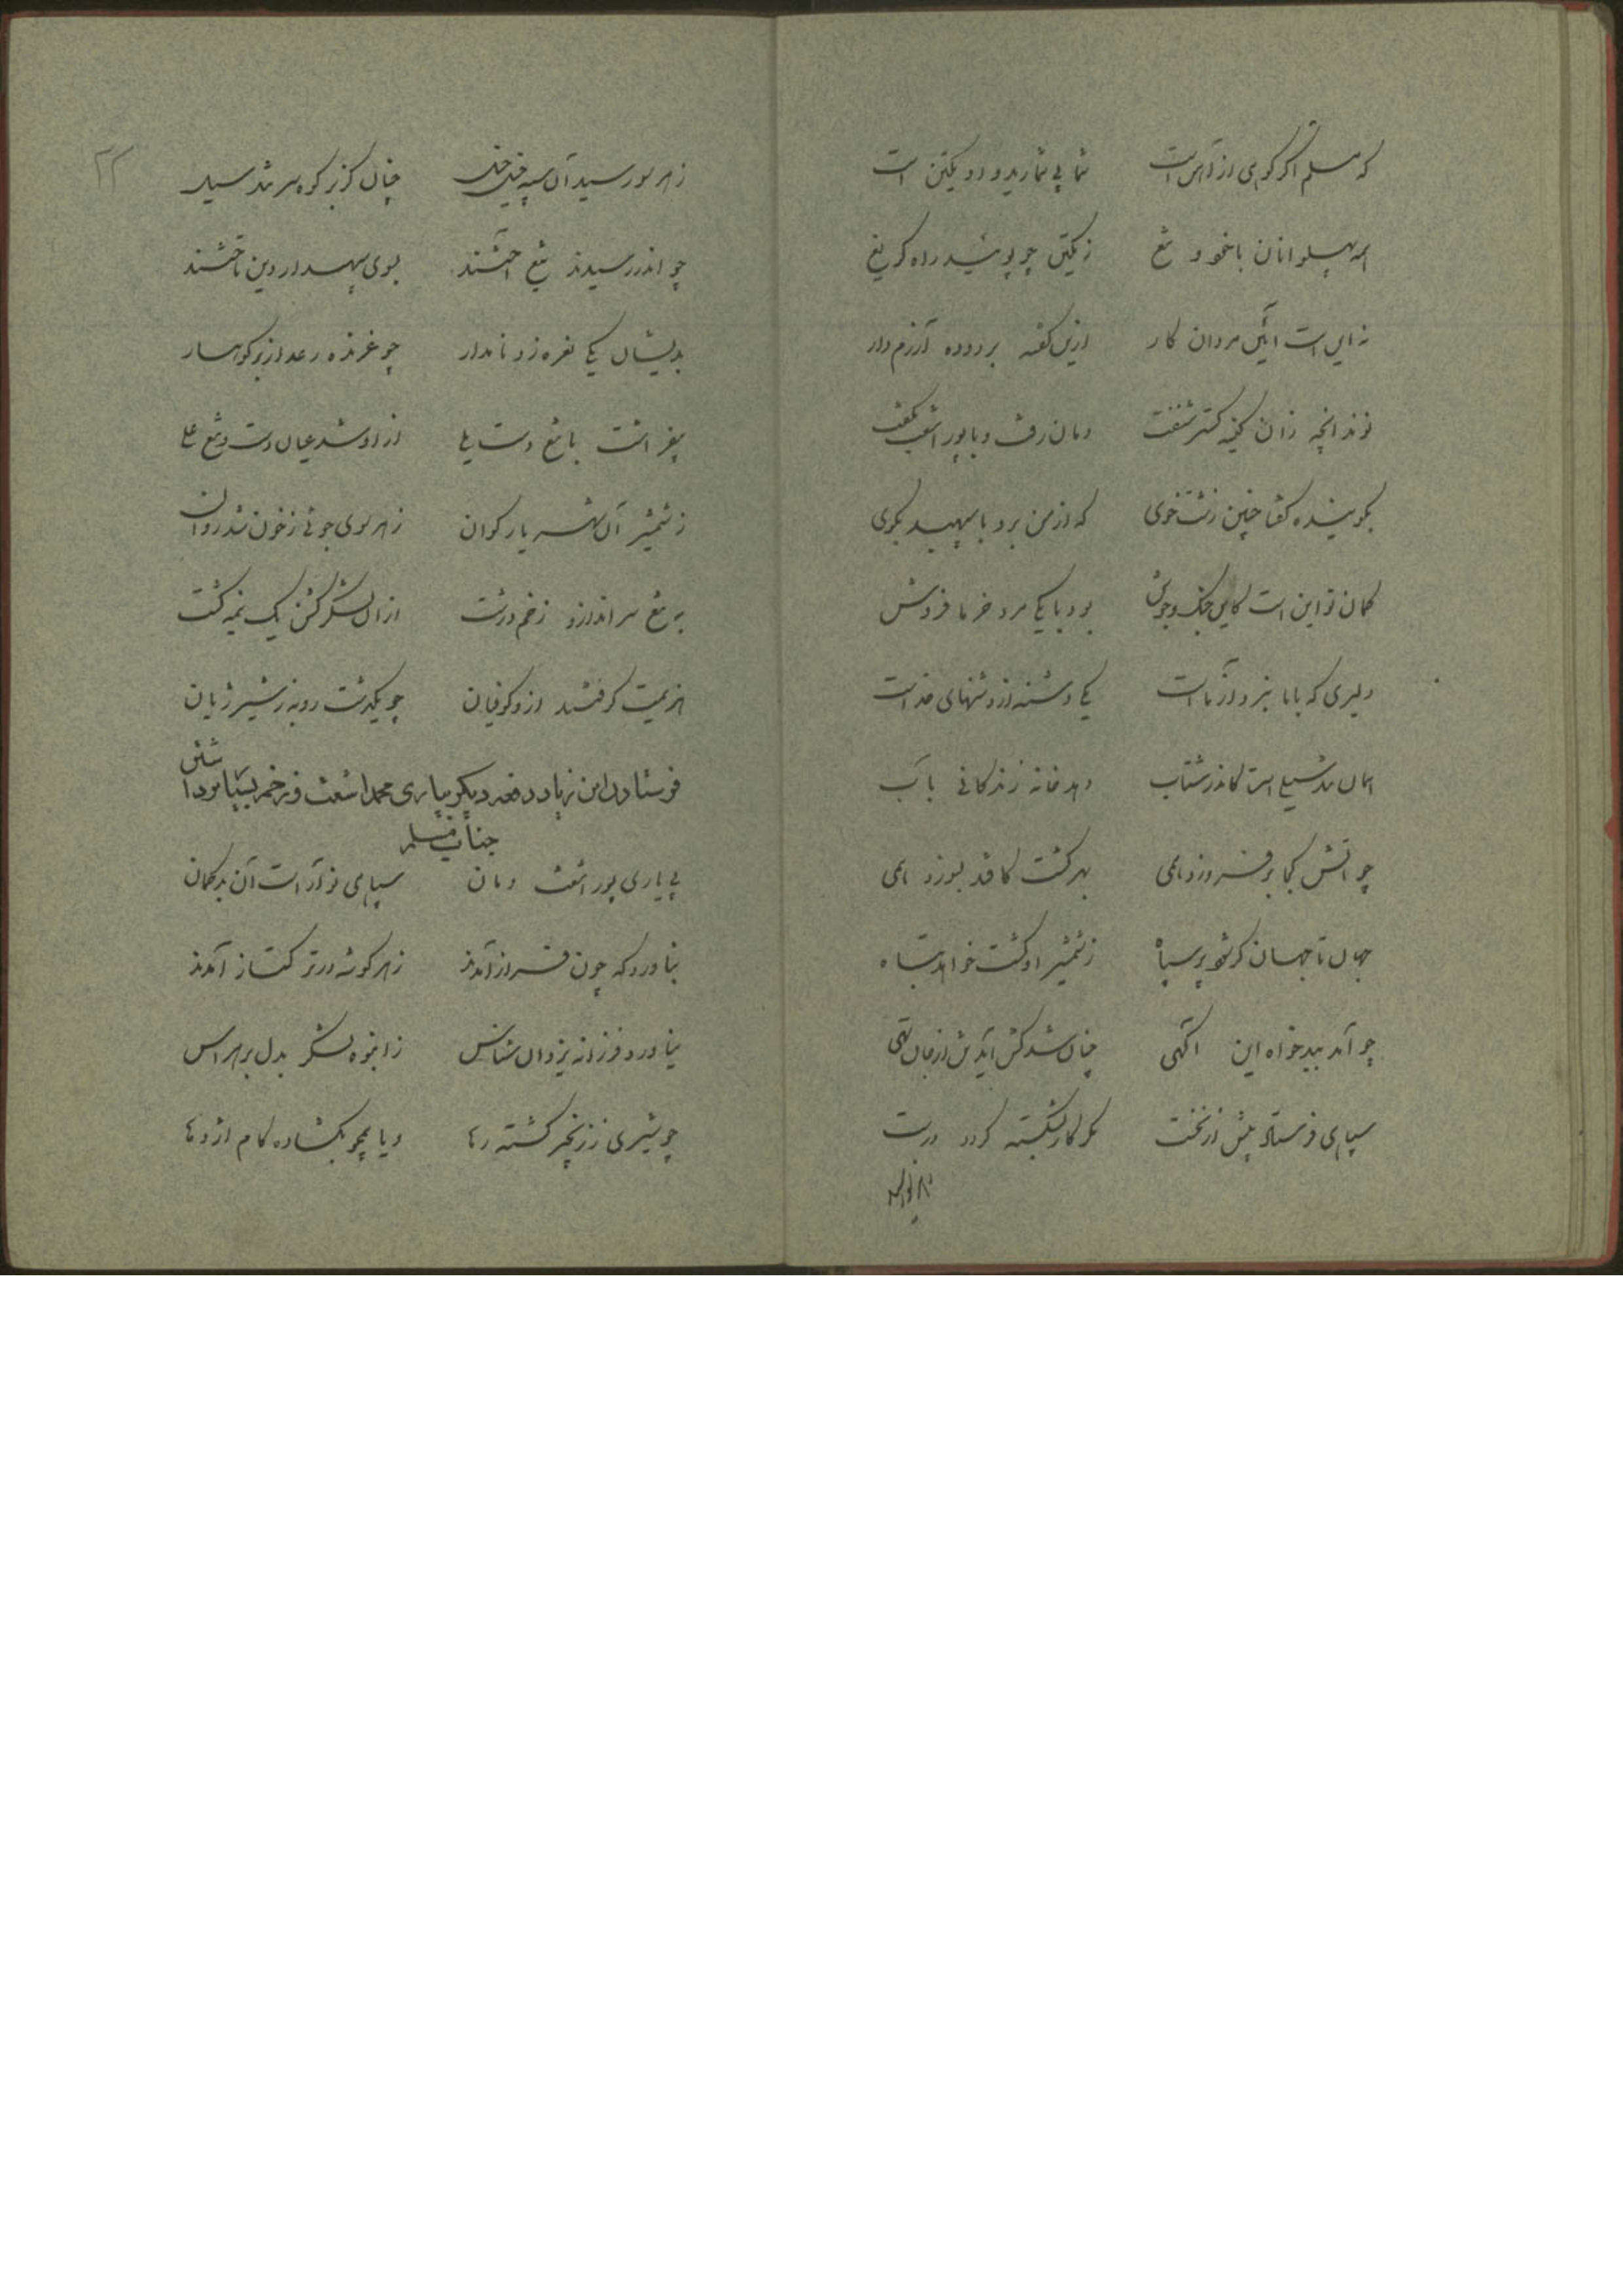 که مسلم اگر کوهی از آهن است شما بی‌شمارید و او یکتن است
همه پهلوانان با خود و تیغ ز یکتن چو پوشید راه گریغ
نه این است آئین مردان کار ازین گفته بر دوده آزرم دار
نوند آنچه زان کینه گستر شنفت دمان رفت و با پور اشعث بگفت
بگوینده گفتا چنین زشتخوی که از من برو با سپهبد بگوی
گمان تو این است کاین جنگ و جوش بود با یکی مرد خرما فروش
دلیری که با ما نبرد آزماست یکی دشنه از دشنهای خداست
همان تند شیع است کاندر شتاب دهد خانه زندگانی بآب
چو آتش کجا بر فروزد همی بهر کشت کافتد بسوزد همی
جهان تا جهان گر شود پر سپاه ز شمشیر او گشت خواهد تباه
چو آمد ببدخواه این آگهی چنان شد کش آید تن از جان تهی
سپاهی فرستاد بیش از نخست مگر کار بشکسته گردد درست
ز هر سو رسید آن سپه خیل خیل چنان کز بر کوه سر تند سیل
چو اندر رسیدند تیغ آختند بسوی سپهدار دین تاختند
بدیشان یکی نعره زد نامدار چو غرنده رعد از بر کوهسار
بیفراشت با تیغ دست یلی از او شد عیان دست و تیغ علی
ز شمشیر آن شهریار گوان ز هر سوی جوئی ز خون شد روان
به تیغ سر انداز و زخم درشت از آن لشکر گشن یک نیمه کشت
هزیمت گرفتند ازو کوفیان چو یکدشت روبه ز شیر ژیان
فرستادن ابن زیاد دفعه دیگر بیاری محمد اشعث و زخم بسیار برداشتن
جناب مسلم
پی یاری پور اشعث دمان سپاهی نو آراست آن بدگمان
بناورد گه چون فراز آمدند ز هر گوشه در ترکتاز آمدند
نیاورد فرزانه یزدان شناس ز انبوه لشکر بدل بر هراس
چو شیری ز زنجیر گشته رها و یا همچو بگشاده کام اژدها